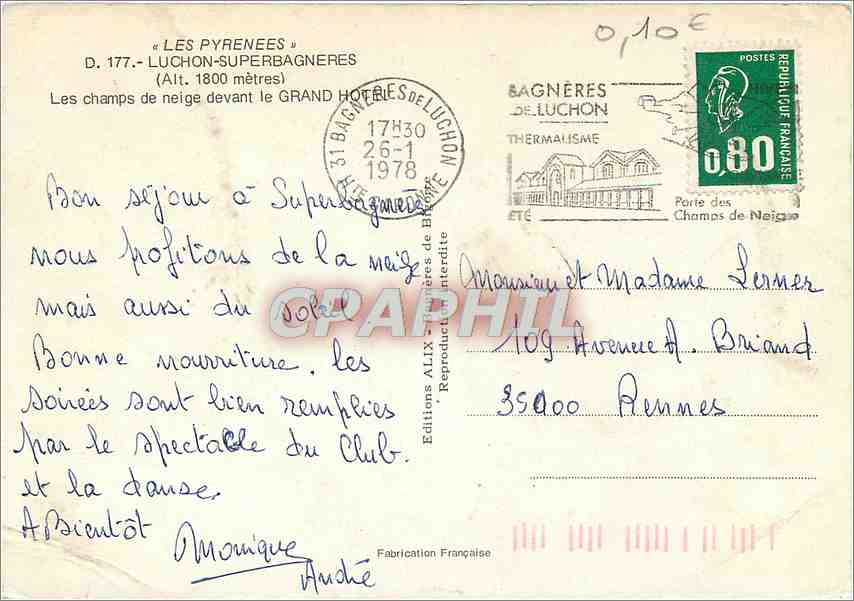 0,10€
« LES PYRENEES »
D. 177.- LUCHON-SUPERBAGNERES
(Alt. 1800 mètres)
Les champs de neige devant le GRAND HOTEL
31 BAGNÈRES DE LUCHON
17H30
26-1
1978
HTE GARONNE
BAGNÈRES
DE LUCHON
THERMALISME
ÉTÉ
HIVER
Porte des
Champs de Neige
POSTES
REPUBLIQUE FRANÇAISE
0,80
Bon séjour à Superbagnères
nous profitons de la neige
mais aussi du soleil
Bonne nourriture. les
soirées sont bien remplies
par le spectacle du Club.
et la danse.
A Bientôt
Monique
André
Editions ALIX - Bagnères de Bigorre
Reproduction interdite
CPAPHIL
Monsieur et Madame Lerner
109 Avenue A. Briand
35000 Rennes
Fabrication Française